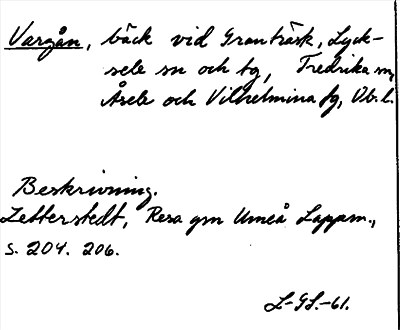 Vargån, bäck vid Granträsk, Lyck-
sele sn och tg, Fredrika sn,
Åsele och Vilhelmina tg, Vb. l.
Beskrivning.
Zetterstedt, Resa gm Umeå Lappm.,
s. 204. 206.
L-GS.-61.